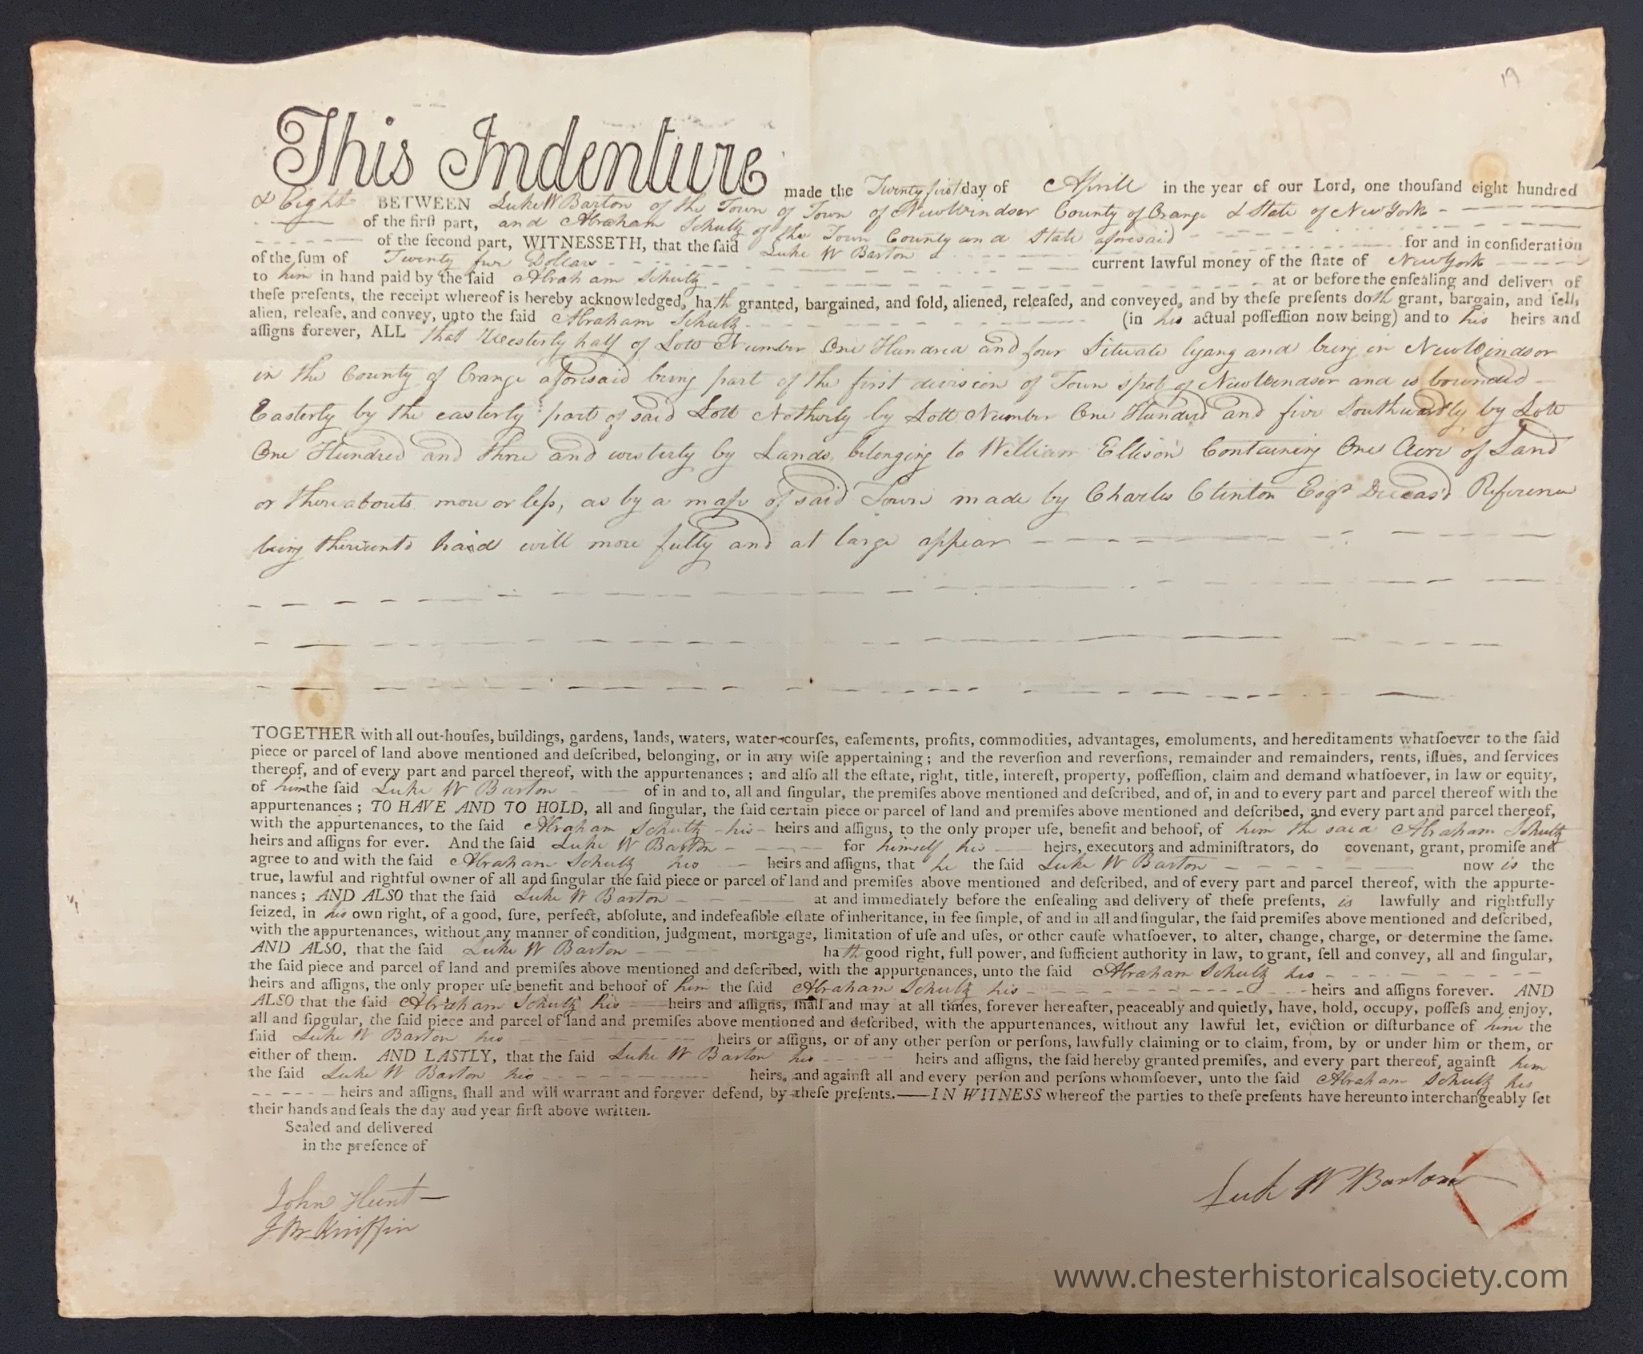 19
This Indenture made the Twenty first day of Aprill in the year of our Lord, one thousand eight hundred
& Eight BETWEEN Luke W Barton of the Town of Town of New Windsor County of Orange & State of New York
of the firſt part, and Abraham Schultz of the Town County and State aforesaid
of the ſecond part, WITNESSETH, that the ſaid Luke W Barton for and in conſideration
of the ſum of Twenty Dollars current lawful money of the ſtate of New York
to him in hand paid by the ſaid Abraham Schultz at or before the enſealing and delivery of
theſe preſents, the receipt whereof is hereby acknowledged, hath granted, bargained, and ſold, aliened, releaſed, and conveyed, and by theſe preſents doth grant, bargain, and ſell,
alien, releaſe, and convey, unto the ſaid Abraham Schultz (in his actual poſſeſſion now being) and to his heirs and
aſſigns forever, ALL that Westerly half of Lott Number One Hundred and four Situate lyang and being in New Windsor
in the County of Orange aforesaid being part of the first division of Town spot of New Windsor and is bounded
Easterly by the easterly part of said Lott Notherly by Lott Number One Hundred and five Southwardly by Lott
One Hundred and three and westerly by Lands belonging to William Ellison Containing One Acre of Land
or thereabouts more or leſs, as by a map of said Town made by Charles Clinton Esqr Deceasd Reference
being thereunto haid will more fully and at large appear
TOGETHER with all out-houſes, buildings, gardens, lands, waters, water-courſes, eaſements, profits, commodities, advantages, emoluments, and hereditaments whatſoever to the ſaid
piece or parcel of land above mentioned and deſcribed, belonging, or in any wiſe appertaining; and the reverſion and reverſions, remainder and remainders, rents, iſſues, and ſervices
thereof, and of every part and parcel thereof, with the appurtenances; and alſo all the eſtate, right, title, intereſt, property, poſſeſſion, claim and demand whatſoever, in law or equity,
of him the ſaid Luke W Barton of in and to, all and ſingular, the premiſes above mentioned and deſcribed, and of, in and to every part and parcel thereof with the
appurtenances; TO HAVE AND TO HOLD, all and ſingular, the ſaid certain piece or parcel of land and premiſes above mentioned and deſcribed, and every part and parcel thereof,
with the appurtenances, to the ſaid Abraham Schultz his heirs and aſſigns, to the only proper uſe, benefit and behoof, of him the said Abraham Schultz
heirs and aſſigns for ever. And the ſaid Luke W Barton for himself his heirs, executors and adminiſtrators, do covenant, grant, promiſe and
agree to and with the ſaid Abraham Schultz his heirs and aſſigns, that he the ſaid Luke W Barton now is the
true, lawful and rightful owner of all and ſingular the ſaid piece or parcel of land and premiſes above mentioned and deſcribed, and of every part and parcel thereof, with the appurte-
nances; AND ALSO that the ſaid Luke W Barton at and immediately before the enſealing and delivery of theſe preſents, is lawfully and rightfully
ſeized, in his own right, of a good, ſure, perfect, abſolute, and indefeaſible eſtate of inheritance, in fee ſimple, of and in all and ſingular, the ſaid premiſes above mentioned and deſcribed,
with the appurtenances, without any manner of condition, judgment, mortgage, limitation of uſe and uſes, or other cauſe whatſoever, to alter, change, charge, or determine the ſame.
AND ALSO, that the ſaid Luke W Barton hath good right, full power, and ſufficient authority in law, to grant, ſell and convey, all and ſingular,
the ſaid piece and parcel of land and premiſes above mentioned and deſcribed, with the appurtenances, unto the ſaid Abraham Schultz his
heirs and aſſigns, the only proper uſe benefit and behoof of him the ſaid Abraham Schultz his heirs and aſſigns forever. AND
ALSO that the ſaid Abraham Schultz his heirs and aſſigns, ſhall and may at all times, forever hereafter, peaceably and quietly, have, hold, occupy, poſſeſs and enjoy,
all and ſingular, the ſaid piece and parcel of land and premiſes above mentioned and deſcribed, with the appurtenances, without any lawful let, eviction or diſturbance of him the
ſaid Luke W Barton his heirs or aſſigns, or of any other perſon or perſons, lawfully claiming or to claim, from, by or under him or them, or
either of them. AND LASTLY, that the ſaid Luke W Barton his heirs and aſſigns, the ſaid hereby granted premiſes, and every part thereof, againſt him
the ſaid Luke W Barton his heirs, and againſt all and every perſon and perſons whomſoever, unto the ſaid Abraham Schultz his
heirs and aſſigns, ſhall and will warrant and forever defend, by theſe preſents.—IN WITNESS whereof the parties to theſe preſents have hereunto interchangeably ſet
their hands and ſeals the day and year firſt above written.
Sealed and delivered
in the preſence of
John Hunt
Luke W Barton
Kniffin
www.chesterhistoricalsociety.com